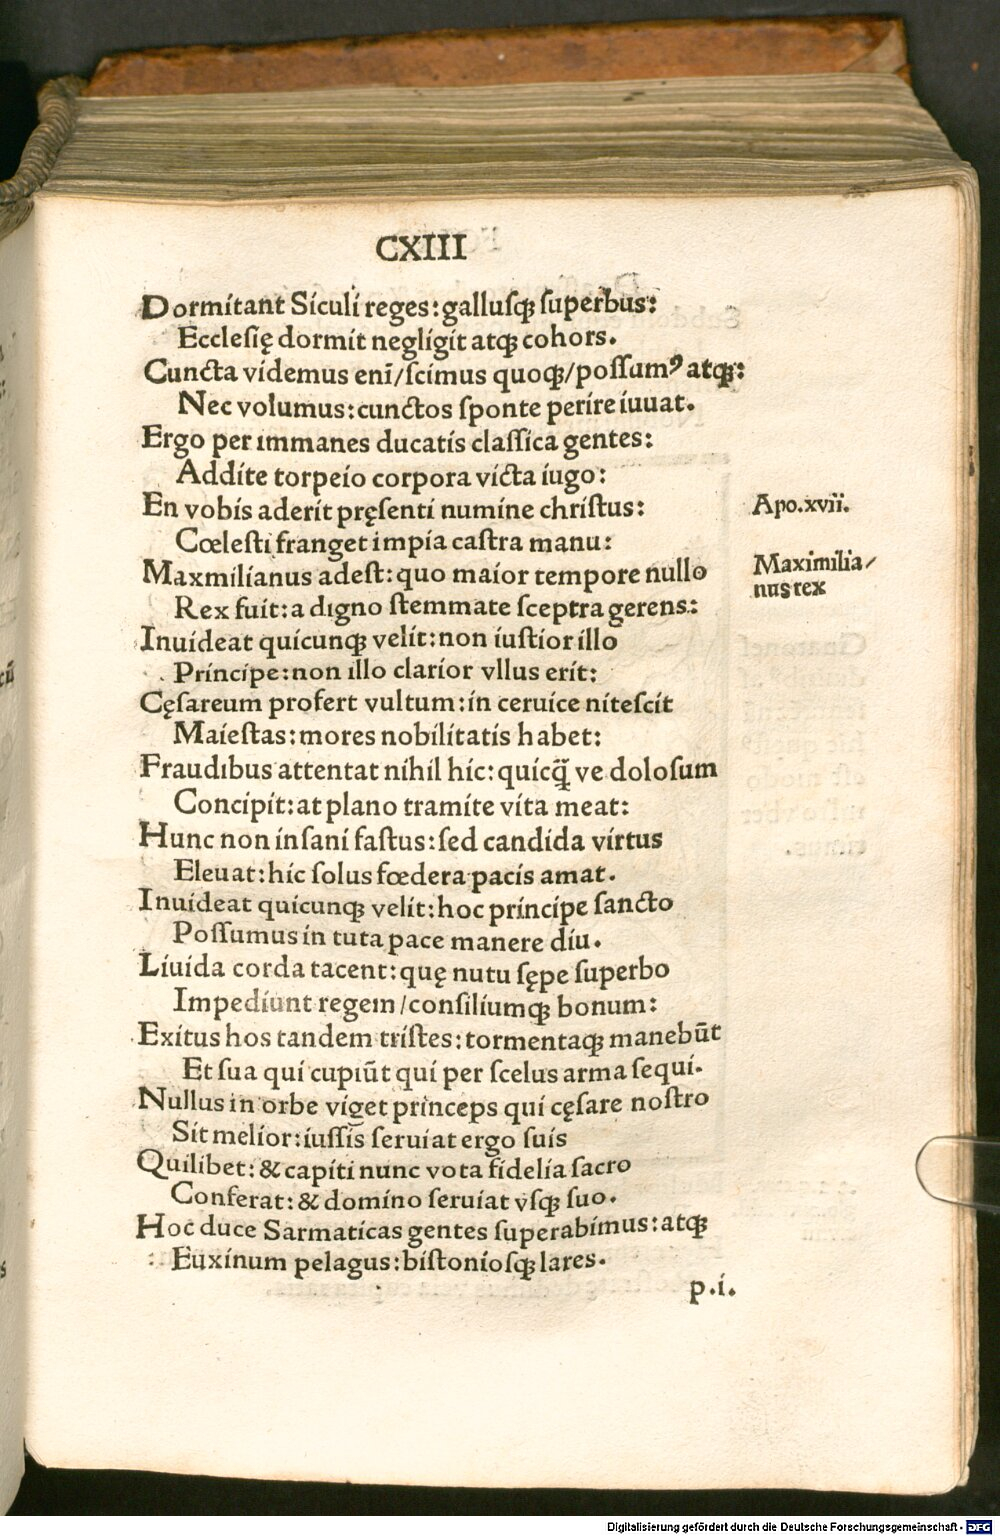 CXIII
Dormitant Siculi reges: gallusqꝫ ſuperbus:
Eccleſię dormit negligit atqꝫ cohors.
Cuncta videmus enī/ſcimus quoqꝫ/poſſumꝰ atqꝫ:
Nec volumus: cunctos ſponte perire iuuat.
Ergo per immanes ducatis claſſica gentes:
Addite torpeio corpora victa iugo:
En vobis aderit pręſenti numine chriſtus:
Apo.xvii.
Cœleſti franget impia caſtra manu:
Maxmilianus adeſt: quo maior tempore nullo
Maximilia/
nus rex
Rex fuit: a digno ſtemmate ſceptra gerens:
Inuideat quicunqꝫ velit: non iuſtior illo
Principe: non illo clarior vllus erit:
Cęſareum profert vultum: in ceruice niteſcit
Maieſtas: mores nobilitatis habet:
Fraudibus attentat nihil hic: quicq̄ꝫ ve doloſum
Concipit: at plano tramite vita meat:
Hunc non inſani faſtus: ſed candida virtus
Eleuat: hic ſolus fœdera pacis amat.
Inuideat quicunqꝫ velit: hoc principe ſancto
Poſſumus in tuta pace manere diu.
Liuida corda tacent: quę nutu ſępe ſuperbo
Impediunt regem/conſiliumqꝫ bonum:
Exitus hos tandem triſtes: tormentaqꝫ manebūt
Et ſua qui cupiūt qui per ſcelus arma ſequi.
Nullus in orbe viget princeps qui cęſare noſtro
Sit melior: iuſſis ſeruiat ergo ſuis
Quilibet: & capiti nunc vota fidelia ſacro
Conferat: & domino ſeruiat vſqꝫ ſuo.
Hoc duce Sarmaticas gentes ſuperabimus: atqꝫ
Euxinum pelagus: biſtonioſqꝫ lares.
p.i.
Digitalisierung gefördert durch die Deutsche Forschungsgemeinschaft - DFG